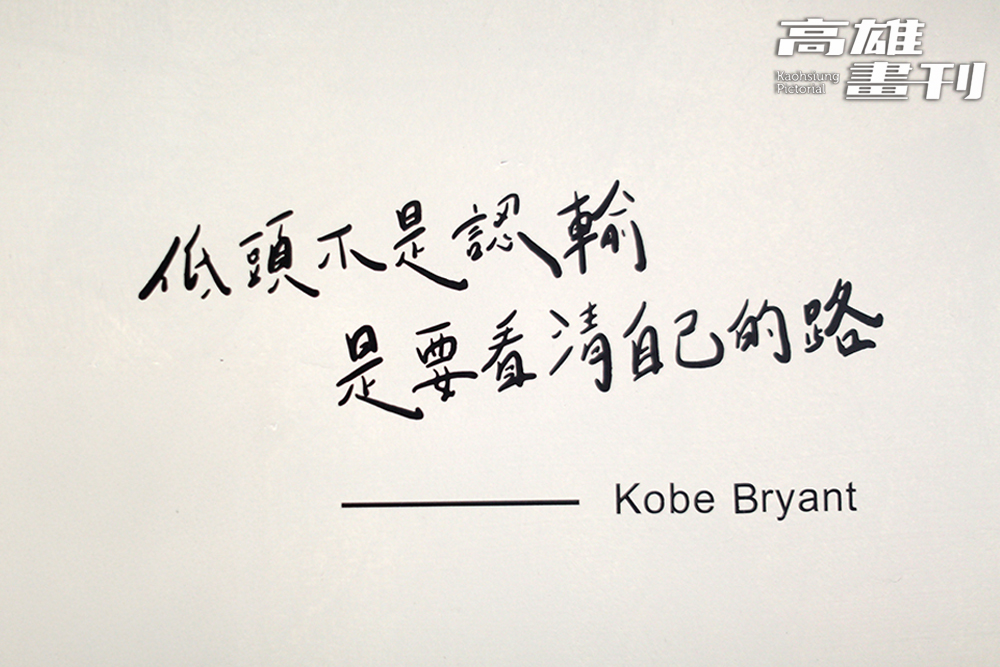 高雄
Kaohsiung
Pictorial
畫刊
低頭不是認輸
是要看清自己的路
Kobe Bryant